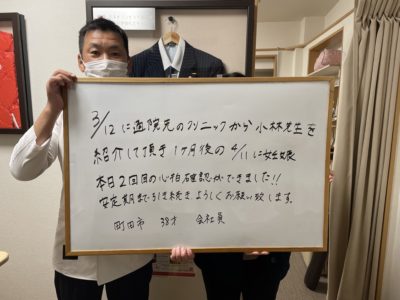 3/12に通院先のクリニックから小林先生を
紹介して頂き1ケ月後の4/11に妊娠
本日2回目の心拍確認ができました!!
安定期まで引き続きよろしくお願い致します。
町田市 38才 会社員